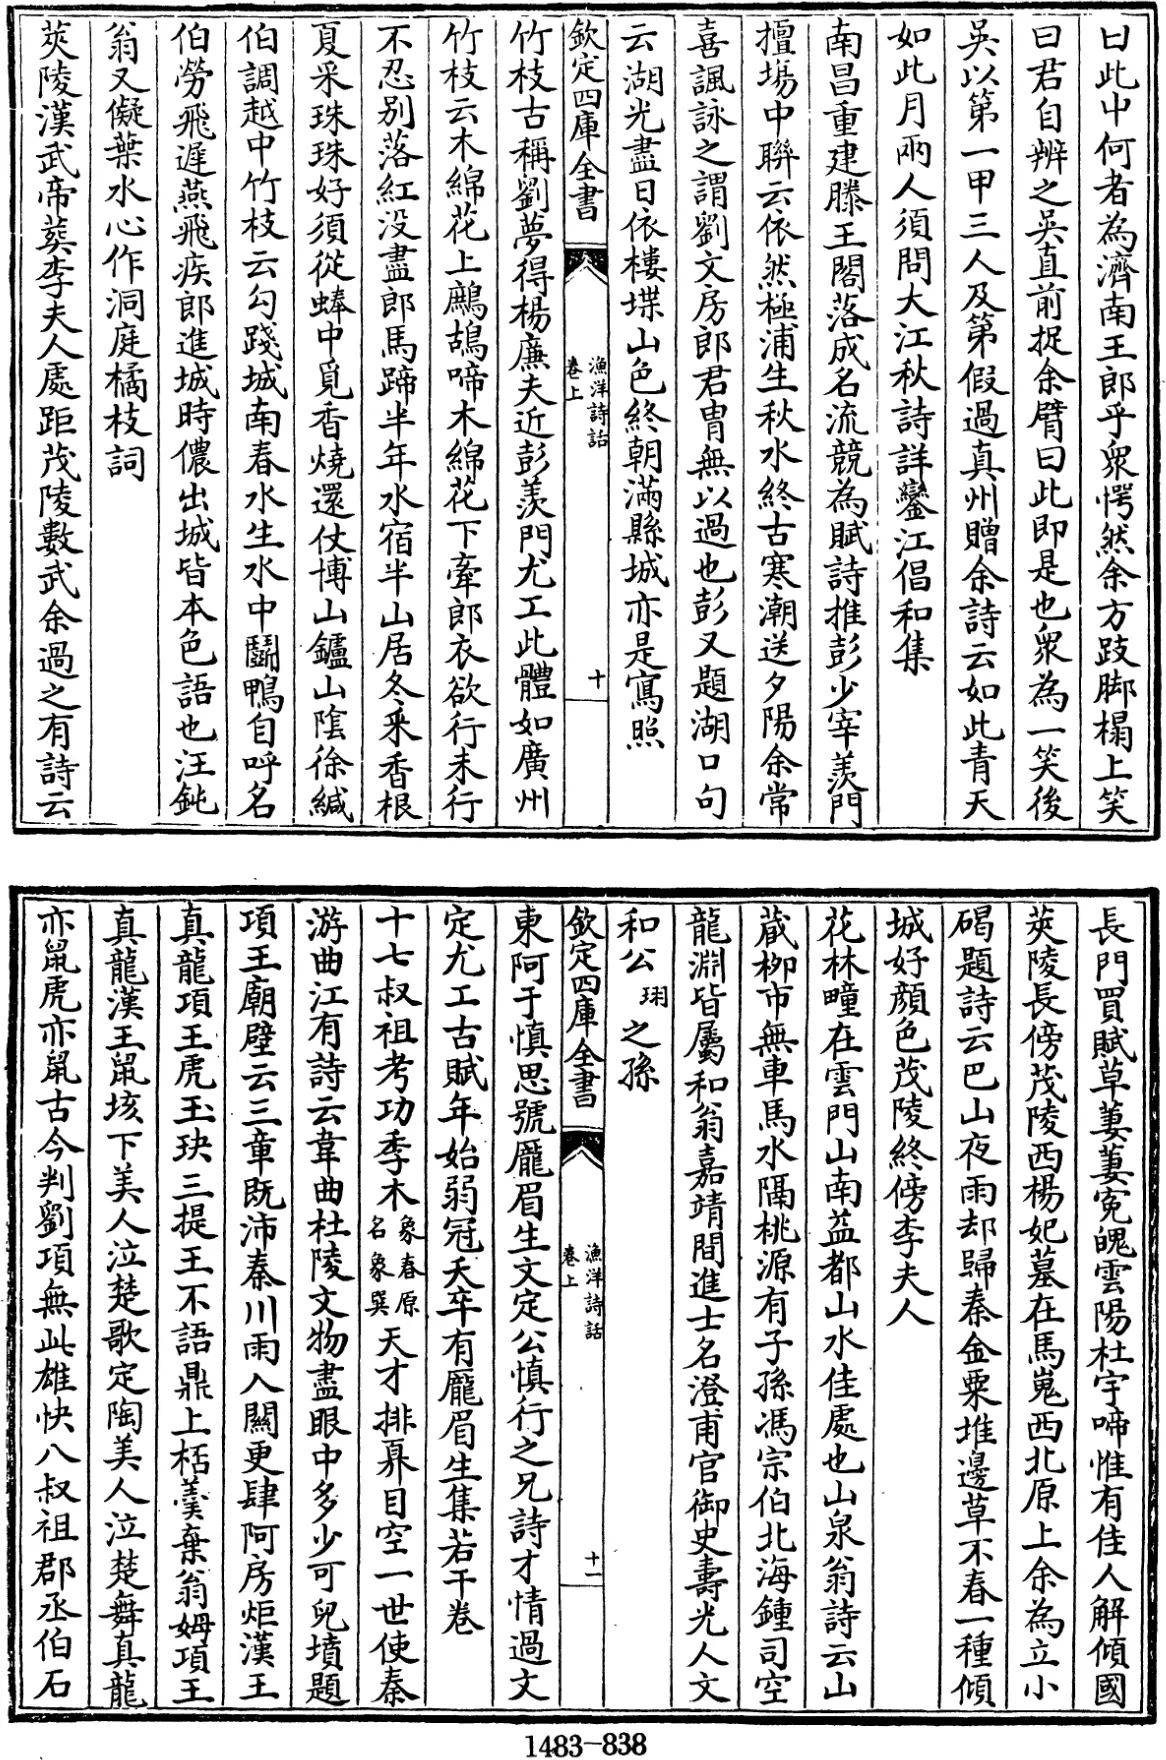 曰此中何者為濟南王郎乎衆愕然余方跂脚榻上笑
曰君自辨之吳直前捉余臂曰此即是也衆為一笑後
吳以第一甲三人及第假過真州贈余詩云如此青天
如此月兩人須問大江秋詩詳鑾江倡和集
南昌重建滕王閣落成名流競為賦詩推彭少宰羨門
擅塲中聯云依然極浦生秋水終古寒潮送夕陽余常
喜諷詠之謂劉文房郎君胄無以過也彭又題湖口句
云湖光盡日依樓堞山色終朝滿縣城亦是寫照
欽定四庫全書
漁洋詩話
卷上
十
竹枝古稱劉夢得楊廉夫近彭羨門尤工此體如廣州
竹枝云木綿花上鷓鴣啼木綿花下牽郎衣欲行未行
不忍別落紅没盡郎馬蹄半年水宿半山居冬采香根
夏采珠珠好須從蜯中覓香燒還仗博山鑪山隂徐緘
伯調越中竹枝云勾踐城南春水生水中鬬鴨自呼名
伯勞飛遲燕飛疾郎進城時儂出城皆本色語也汪鈍
翁又儗葉水心作洞庭橘枝詞
莢陵漢武帝葬李夫人處距茂陵數武余過之有詩云
長門買賦草萋萋寃魄雲陽杜宇啼惟有佳人解傾國
莢陵長傍茂陵西楊妃墓在馬嵬西北原上余為立小
碣題詩云巴山夜雨却歸秦金粟堆邊草不春一種傾
城好顔色茂陵終傍李夫人
花林疃在雲門山南益都山水佳處也山泉翁詩云山
蔵柳市無車馬水隔桃源有子孫馮宗伯北海鍾司空
龍淵皆屬和翁嘉靖間進士名澄甫官御史壽光人文
和公珝之孫
欽定四庫全書
漁洋詩話
卷上
十一
東阿于慎思號龎眉生文定公慎行之兄詩才情過文
定尤工古賦年始弱冠夭卒有龎眉生集若干卷
十七叔祖考功季木象春原名象巽天才排奡目空一世使秦
游曲江有詩云韋曲杜陵文物盡眼中多少可兒墳題
項王廟壁云三章既沛秦川雨入關更肆阿房炬漢王
真龍項王虎玉玦三提王不語鼎上桮羹棄翁姆項王
真龍漢王鼠垓下美人泣楚歌定陶美人泣楚舞真龍
亦鼠虎亦鼠古今判劉項無此雄快八叔祖郡丞伯石
1483-838